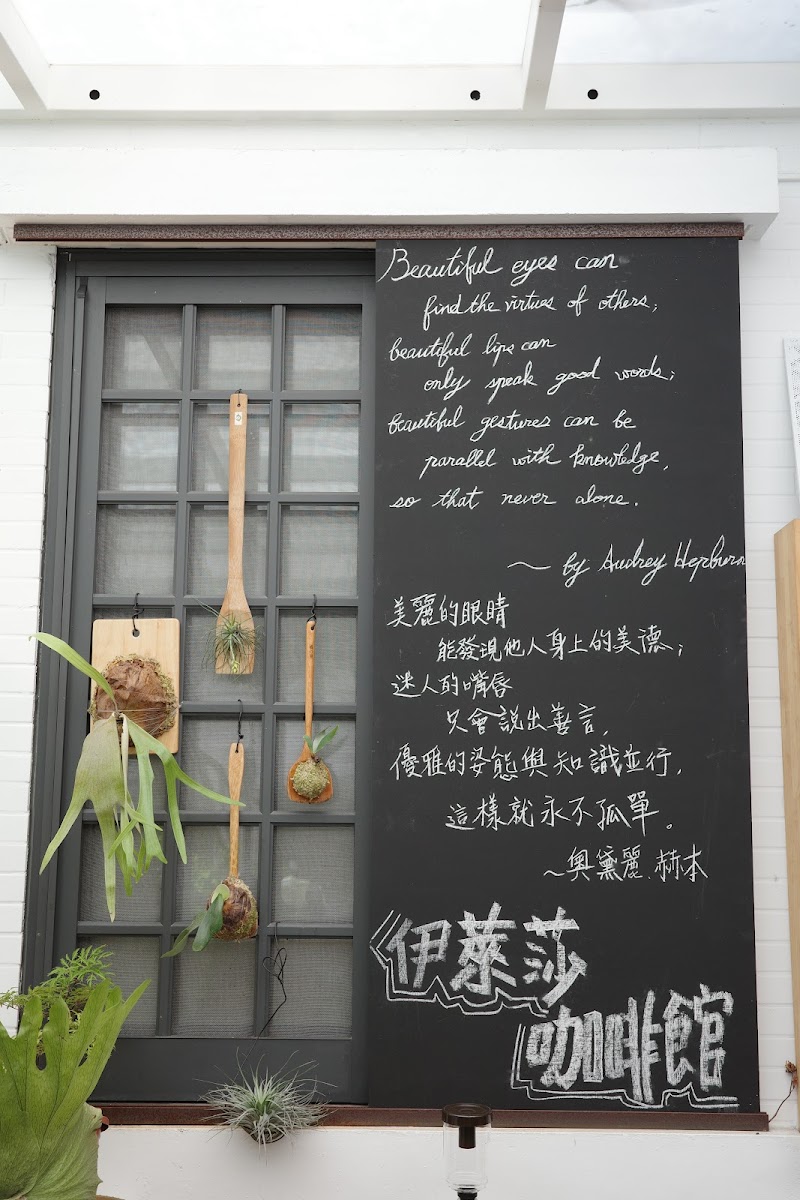 Beautiful eyes can
find the virtues of others;
beautiful lips can
only speak good words;
beautiful gestures can be
parallel with knowledge,
so that never alone.
~ by Audrey Hepburn
美麗的眼睛
能發現他人身上的美德；
迷人的嘴唇
只會說出善言，
優雅的姿態與知識並行，
這樣就永不孤單。
~奧黛麗.赫本
伊萊莎
咖啡館